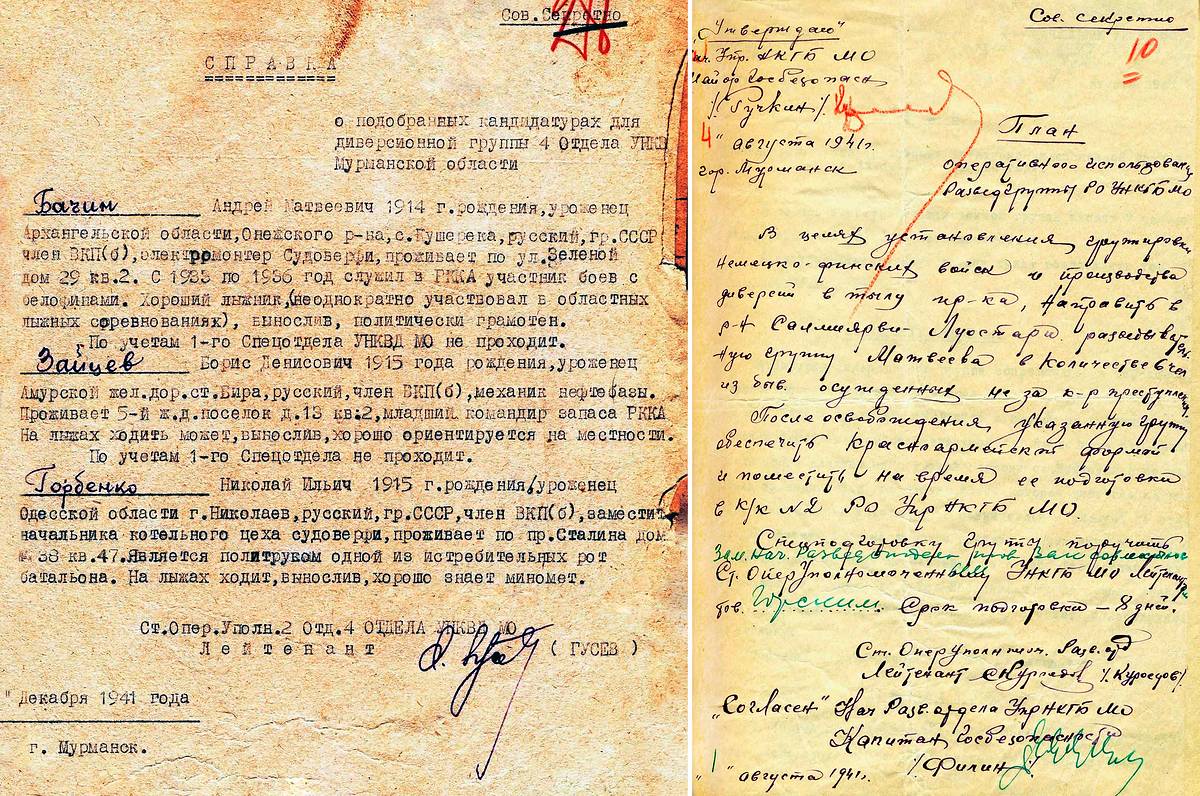 Сов.Секретно
СПРАВКА
о подобранных кандидатурах для
диверсионной группы 4 Отдела УНКВ
Мурманской области
Бачин Андрей Матвеевич 1914 г.рождения,уроженец
Архангельской области,Онежского р-на,с.Кушерека,русский,гр.СССР
член ВКП(б),электромонтер Судоверфи,проживает по ул.Зеленой
дом 29 кв.2. С 1935 по 1936 год служил в РККА участник боев с
белофинами. Хороший лыжник,(неоднократно участвовал в областных
лыжных соревнованиях), вынослив, политически грамотен.
По учетам 1-го Спецотдела УНКВД МО не проходит.
Зайцев Борис Денисович 1915 года рождения,уроженец
Амурской жел.дор.ст.Бира,русский,член ВКП(б),механик нефтебазы.
Проживает 5-й ж.д.поселок д.13 кв.2,младший командир запаса РККА
На лыжах ходить может,вынослив,хорошо ориентируется на местности.
По учетам 1-го Спецотдела не проходит.
Горбенко Николай Ильич 1915 г.рождения,уроженец
Одесской области г.Николаев,русский,гр.СССР,член ВКП(б),заместит
начальника котельного цеха судоверфи,проживает по пр.Сталина дом
№ 38 кв.47.Является политруком одной из истребительных рот
батальона. На лыжах ходит,вынослив,хорошо знает миномет.
Ст.Опер.Уполн.2 Отд.4 ОТДЕЛА УНКВД МО
Лейтенант (ГУСЕВ )
" Декабря 1941 года
г. Мурманск.
Сов. секретно
10
"Утверждаю"
Нач. Упр. НКГБ МО
Майор Госбезопасн
/Ручкин/
4 " августа 1941г.
гор. Мурманск
План
оперативного использован
Разведгруппы РО УНКГБ МО
В целях установления группировки
немецко-финских войск и производства
диверсий в тылу пр-ка, направить в
р-н Салмиярви-Луостари разведыватель
ную группу Матвеева в количестве чел
из быв. осужденных не за к-р преступлен
После освобождения указанную группу
обеспечить красноармейской формой
и поместить на время ее подготовки
в к/к №2 РО УпрНКГБ МО.
Спецподготовку группы поручить
Зам. Нач. Разведотдела
Ст. Оперуполномоченным УНКГБ МО Лейтенант
тов. Горским. Срок подготовки – 8 дней.
Ст. Оперуполном. Разв. отд
Лейтенант /Куроедов/
"Согласен" Нач Разв. отдела УпрНКГБ МО
Капитан Госбезопасности
/Филин/
1 " августа 1941г.